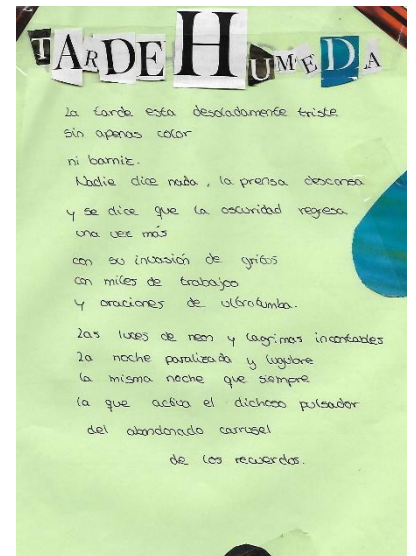 TARDE HUMEDA
La tarde esta desoladamente triste
sin apenas color
ni barniz.
Nadie dice nada, la prensa descansa
y se dice que la oscuridad regresa
una vez más
con su invasión de gritos
con miles de trabajos
y oraciones de ultratumba.
Las luces de neon y lagrimas incontables
La noche paralizada y lugubre
la misma noche que siempre
la que activa el dichoso pulsador
del abandonado carrusel
de los recuerdos.